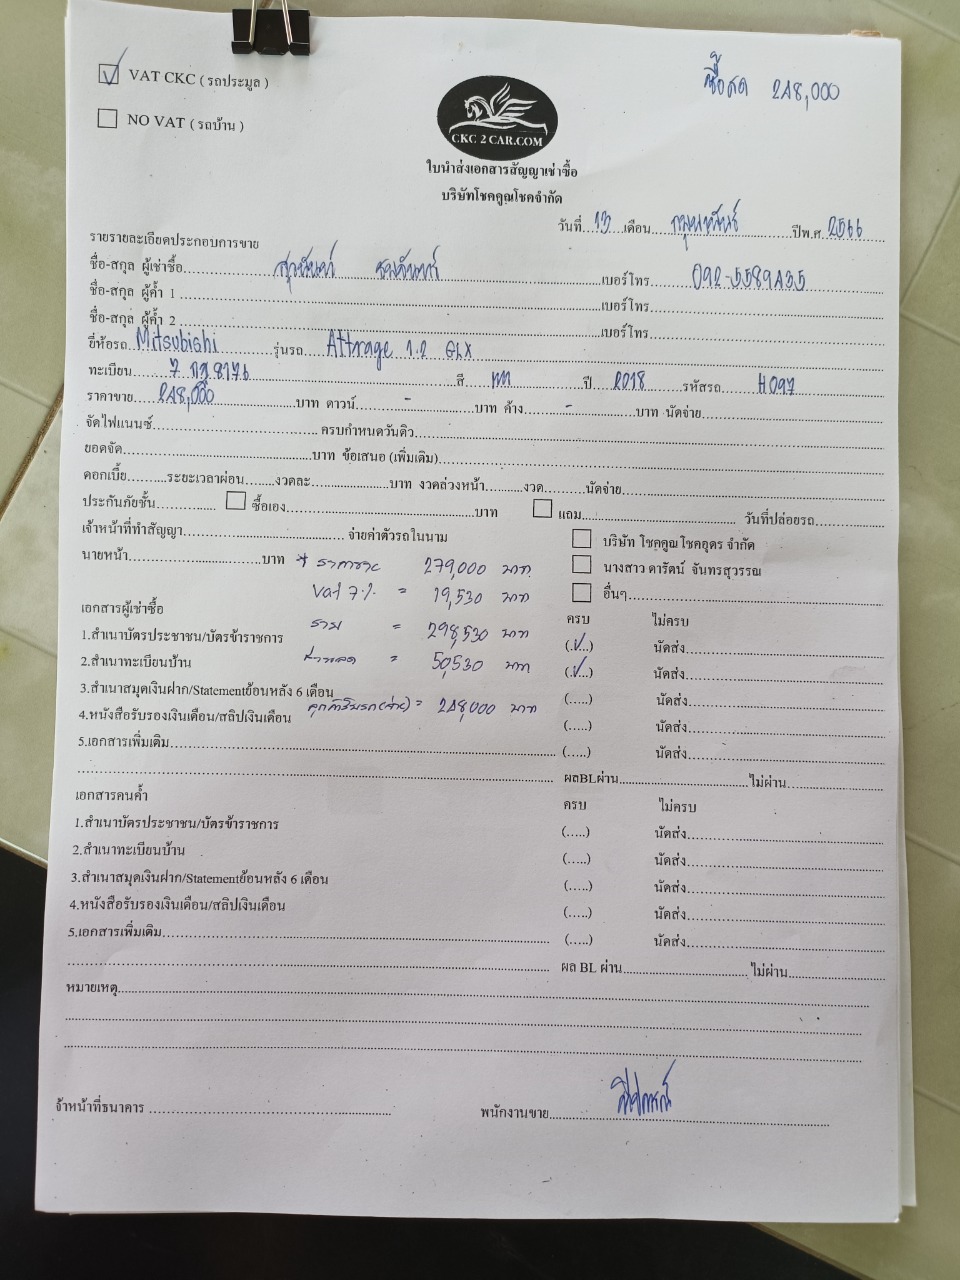 VAT CKC ( รถประมูล )
ซื้อสด 248,000
NO VAT ( รถบ้าน )
CKC 2 CAR.COM
ใบนำส่งเอกสารสัญญาเช่าซื้อ
บริษัทโชคคูณโชคจำกัด
วันที่....13....เดือน....กุมภาพันธ์....ปีพ.ศ. 2566
รายรายละเอียดประกอบการขาย
ชื่อ-สกุล ผู้เช่าซื้อ..........เบอร์โทร.....092-5589435
ชื่อ-สกุล ผู้ค้ำ 1 ..........เบอร์โทร..........
ชื่อ-สกุล ผู้ค้ำ 2 ..........เบอร์โทร..........
ยี่ห้อรถ Mitsubishi ..........รุ่นรถ Attrage 1.2 GLX
ทะเบียน..........สี.....เทา.....ปี.....2018.....รหัสรถ.....H097
ราคาขาย.....248,000.....บาท ดาวน์.....-.....บาท ค้าง.....-.....บาท นัดจ่าย..........
จัดไฟแนนซ์..........ครบกำหนดวันดิว..........
ยอดจัด..........บาท ข้อเสนอ (เพิ่มเติม)..........
ดอกเบี้ย..........ระยะเวลาผ่อน.......งวดละ..........บาท งวดล่วงหน้า..........งวด..........นัดจ่าย..........
ประกันภัยชั้น.......... ซื้อเอง..........บาท แถม.......... วันที่ปล่อยรถ..........
เจ้าหน้าที่ทำสัญญา.......... จ่ายค่าตัวรถในนาม
บริษัท โชคคูณโชคอุดร จำกัด
นายหน้า..........บาท * ราคาขาย 279,000 บาท
นางสาว ดารัตน์ จันทรสุวรรณ
Vat 7% = 19,530 บาท
อื่นๆ..........
เอกสารผู้เช่าซื้อ
ครบ ไม่ครบ
รวม = 298,530 บาท
1.สำเนาบัตรประชาชน/บัตรข้าราชการ (..✓...) นัดส่ง..........
ส่วนลด = 50,530 บาท
2.สำเนาทะเบียนบ้าน (..✓...) นัดส่ง..........
3.สำเนาสมุดเงินฝาก/Statementย้อนหลัง 6 เดือน (.....) นัดส่ง..........
= 248,000 บาท
4.หนังสือรับรองเงินเดือน/สลิปเงินเดือน (.....) นัดส่ง..........
5.เอกสารเพิ่มเติม.......... (.....) นัดส่ง..........
.......... ผลBLผ่าน..........ไม่ผ่าน..........
เอกสารคนค้ำ ครบ ไม่ครบ
1.สำเนาบัตรประชาชน/บัตรข้าราชการ (.....) นัดส่ง..........
2.สำเนาทะเบียนบ้าน (.....) นัดส่ง..........
3.สำเนาสมุดเงินฝาก/Statementย้อนหลัง 6 เดือน (.....) นัดส่ง..........
4.หนังสือรับรองเงินเดือน/สลิปเงินเดือน (.....) นัดส่ง..........
5.เอกสารเพิ่มเติม.......... (.....) นัดส่ง..........
.......... ผล BL ผ่าน..........ไม่ผ่าน..........
หมายเหตุ..........
จ้าหน้าที่ธนาคาร .......... พนักงานขาย..........